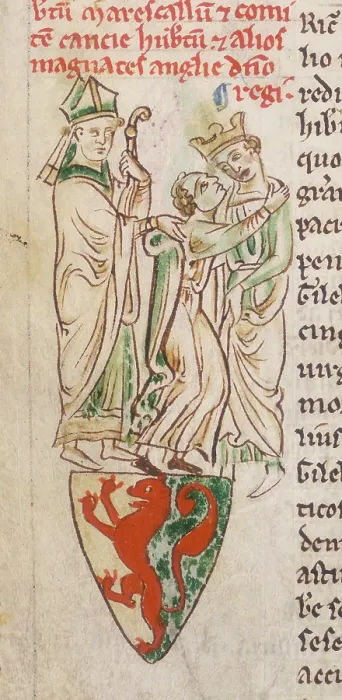 btū marescallū ⁊ comi
tē cancie hubtū ⁊ alios
magnates anglie dño
regi.
Ric
lio
redi
hib
quo
grā
paci
pen
Gileb
cing
uirg
mo
lius
Gileb
ticos
dem
astu
be se
sese
acci